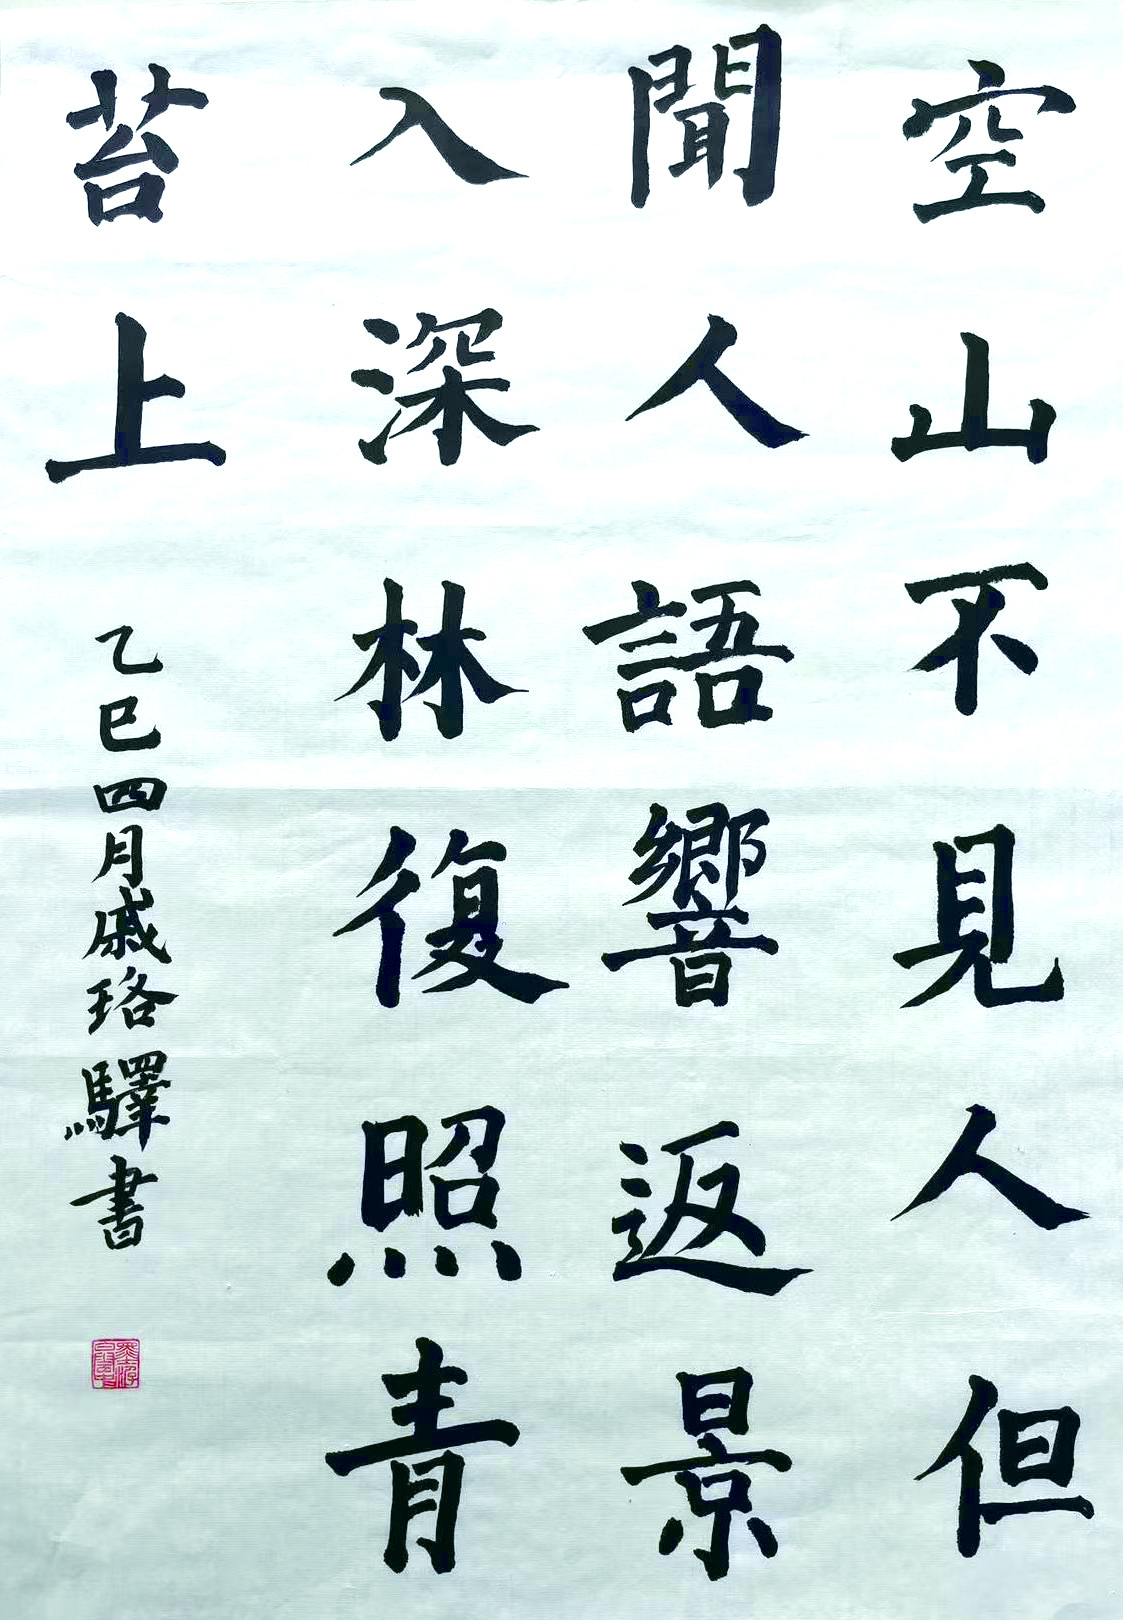 空山不見人但
聞人語響返景
入深林復照青
苔上
乙巳四月戚珞驛書